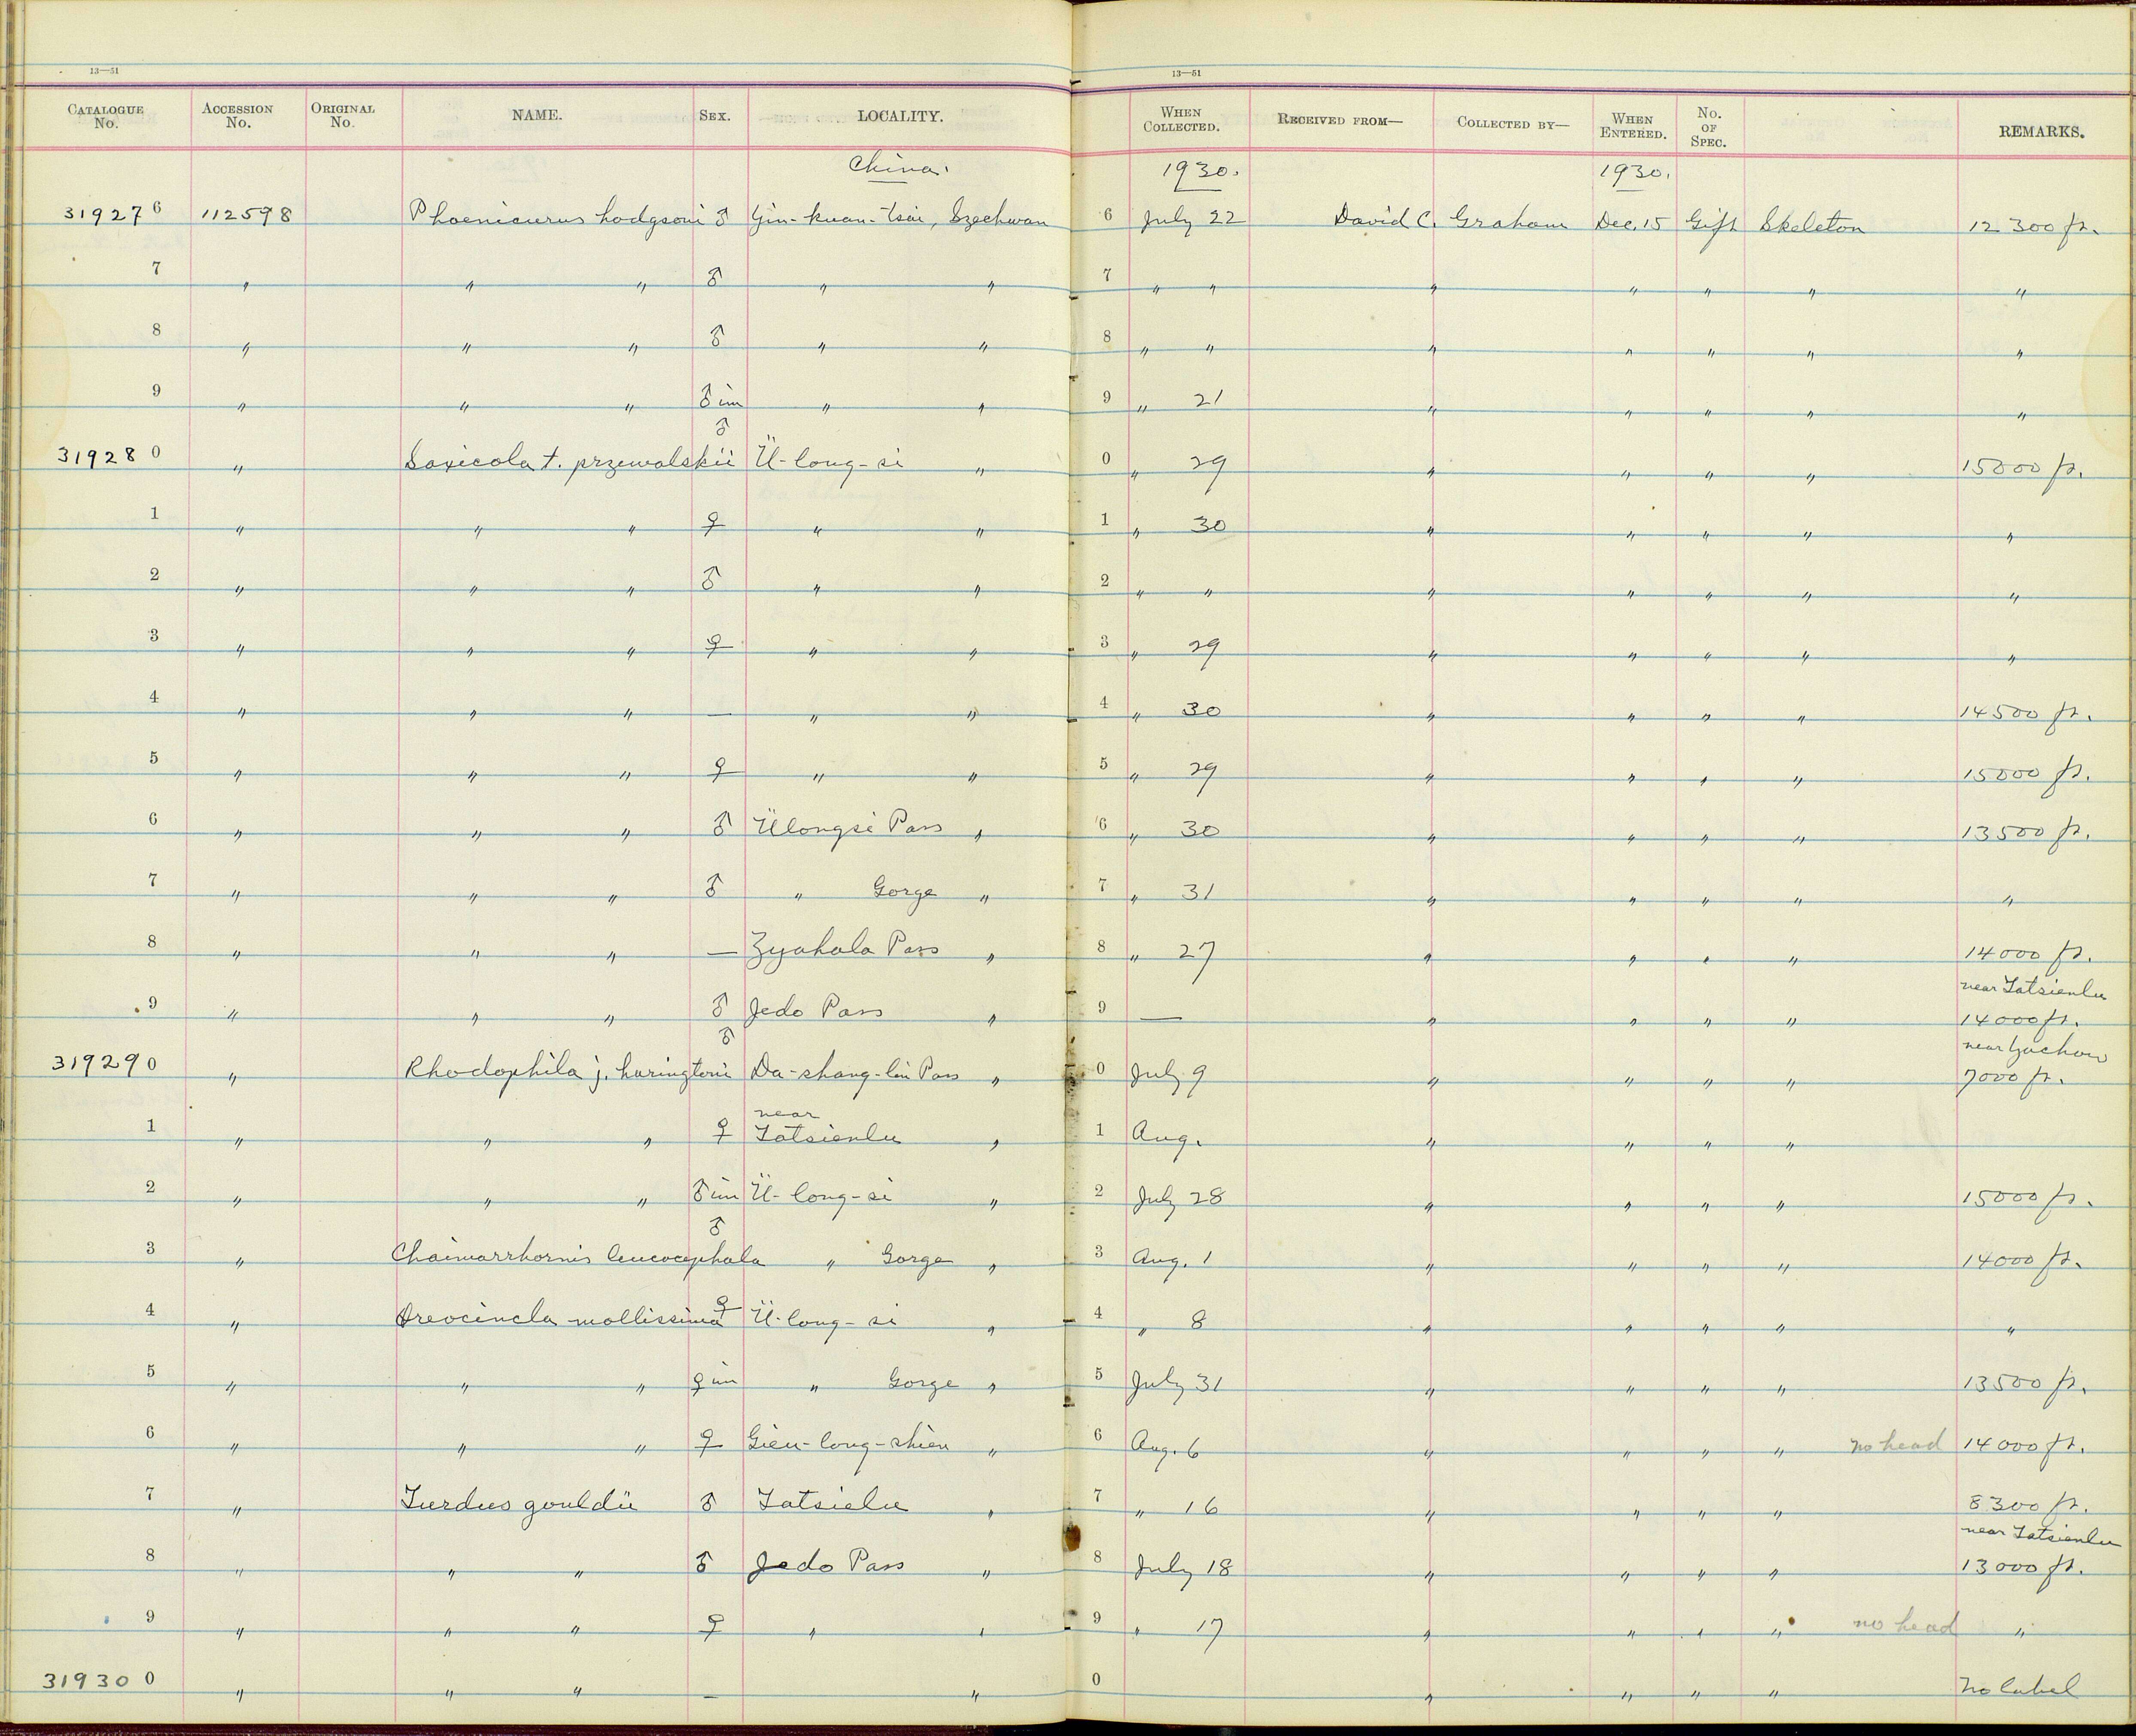 13—51 13—51
CATALOGUE No. ACCESSION No. ORIGINAL No. NAME. SEX. LOCALITY. WHEN COLLECTED. RECEIVED FROM— COLLECTED BY— WHEN ENTERED. No. OF SPEC. REMARKS.
China. 1930. 1930.
319276 112598 Phoenicurus hodgsoni ♂ Yin-kuan-tsai, Szechwan 6 July 22 David C. Graham Dec. 15 Gift Skeleton 12300 ft.
7 " " " ♂ " " 7 " " " " " " "
8 " " " ♂ " " 8 " " " " " " "
9 " " " ♂ im " " 9 " 21 " " " " "
319280 " Saxicola t. przewalskii ♂ Ü-long-si " 0 " 29 " " " " 15000 ft.
1 " " " ♀ " " 1 " 30 " " " " "
2 " " " ♂ " " 2 " " " " " " "
3 " " " ♀ " " 3 " 29 " " " " "
4 " " " — " " 4 " 30 " " " " 14500 ft.
5 " " " ♀ " " 5 " 29 " " " " 15000 ft.
6 " " " ♂ Ülongsi Pass " 6 " 30 " " " " 13500 ft.
7 " " " ♂ " Gorge " 7 " 31 " " " " "
8 " " " — Zyahala Pass " 8 " 27 " " " " 14000 ft.
near Tatsienlu
9 " " " ♂ Jedo Pass " 9 — " " " " 14000 ft.
near Yachow
319290 " Rhodophila j. haringtoni ♂ Da-shang-lin Pass " 0 July 9 " " " " 7000 ft.
near
1 " " " ♀ Tatsienlu " 1 Aug. " " " "
2 " " " ♂ im Ü-long-si " 2 July 28 " " " " 15000 ft.
3 " Chaimarrhornis leucocephala ♂ " Gorge " 3 Aug. 1 " " " " 14000 ft.
4 " Oreocincla mollissima ♀ Ü-long-si " 4 " 8 " " " " "
5 " " " ♀ im " Gorge " 5 July 31 " " " " 13500 ft.
6 " " " ♀ Gien-long-shien " 6 Aug. 6 " " " " no head 14000 ft.
7 " Turdus gouldii ♂ Tatsielu " 7 " 16 " " " " 8300 ft.
near Tatsienlu
8 " " " ♂ Jedo Pass " 8 July 18 " " " " 13000 ft.
9 " " " ♀ " " 9 " 17 " " " " no head "
319300 " " " — " 0 " " " " No label